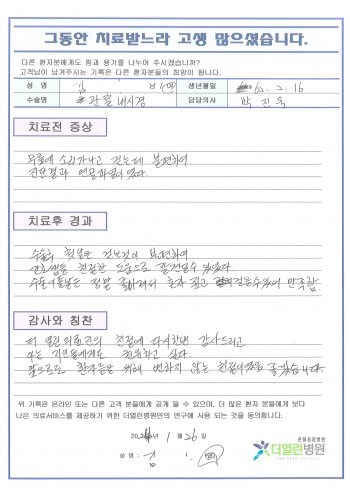 그동안 치료받느라 고생 많으셨습니다.
다른 환자분에게도 힘과 용기를 나누어 주시겠습니까?
고객님이 남겨주시는 기록은 다른 환자분들의 희망이 됩니다.
성 명 김 남 여 생년월일 62. 2. 16
수술명 관절내시경 담당의사 박진욱
치료전 증상
무릎에 소리가나고 걷는데 불편하여
진단결과 연골파열이었다.
치료후 경과
수술후 첫날은 불편하여
친절한 도움으로 잘견딜수 있었다
수술이튿날은 정말 좋아져서 혼자 걷고 걸을수있어 만족함.
감사와 칭찬
더 열린의료진의 친절에 다시한번 감사드리고
지인들에게도 싶다.
앞으로도 환자분들 위해 변하지 않는 친절이었음 좋겠습니다.
위 기록은 온라인 또는 다른 고객 분들에게 공개 될 수 있으며, 더 많은 환자 분들에게 보다
나은 의료서비스를 제공하기 위한 더열린병원만의 연구에 사용 되는 것을 동의합니다.
1월 26일
성명 : 김
관절종합병원
더열린병원